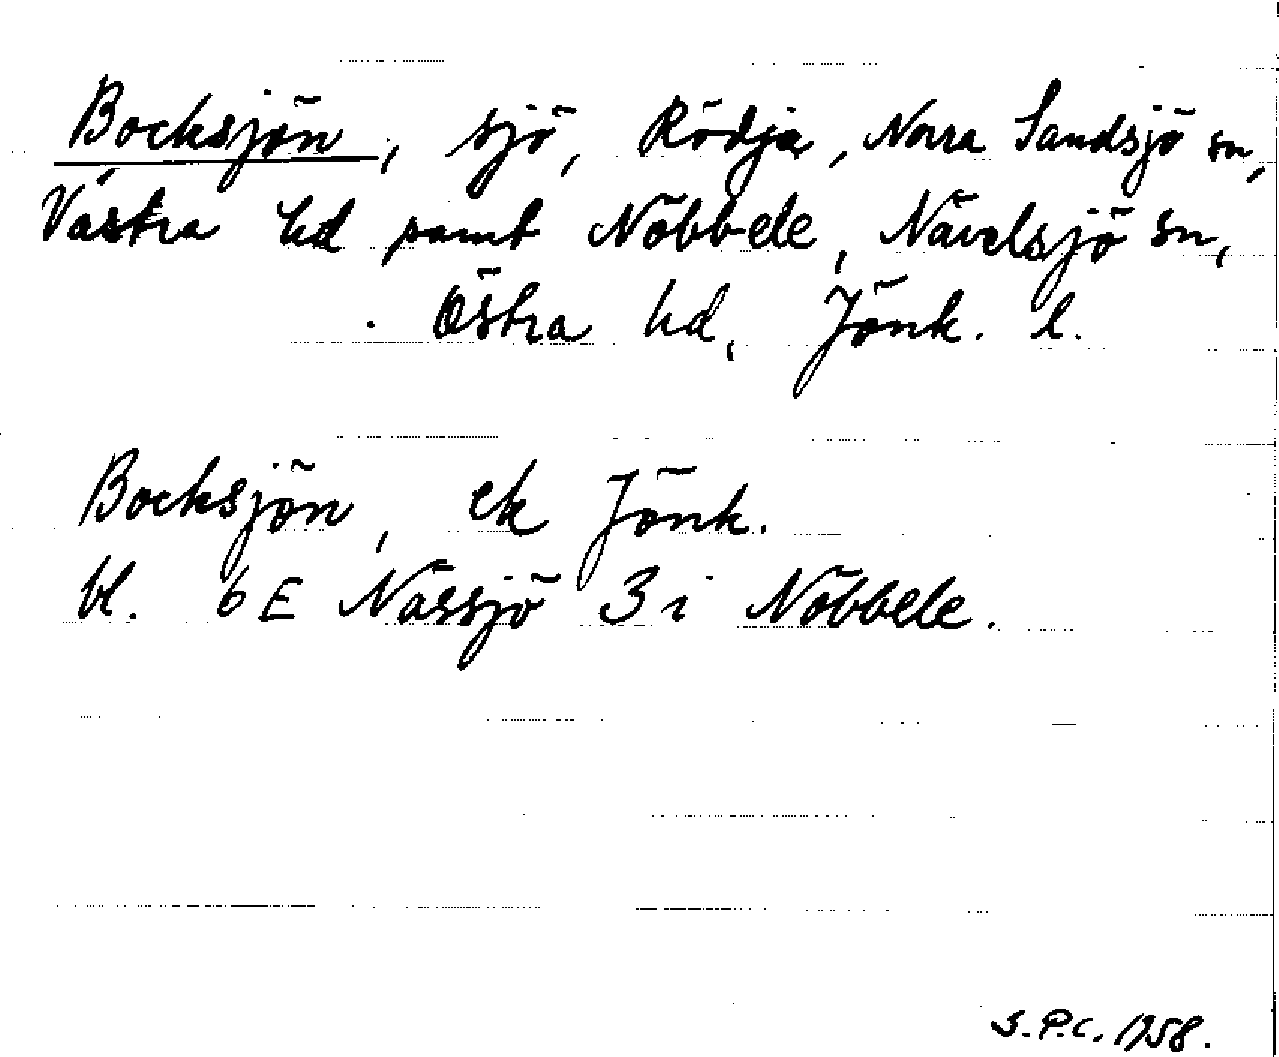 Bocksjön, sjö, Rödja, Norra Sandsjö sn,
Västra hd samt Nöbbele, Nävelsjö sn,
Östra hd, Jönk. l.
Bocksjön, ek Jönk.
bl. 6E Nässjö 3 i Nöbbele.
S.P.C. 1958.